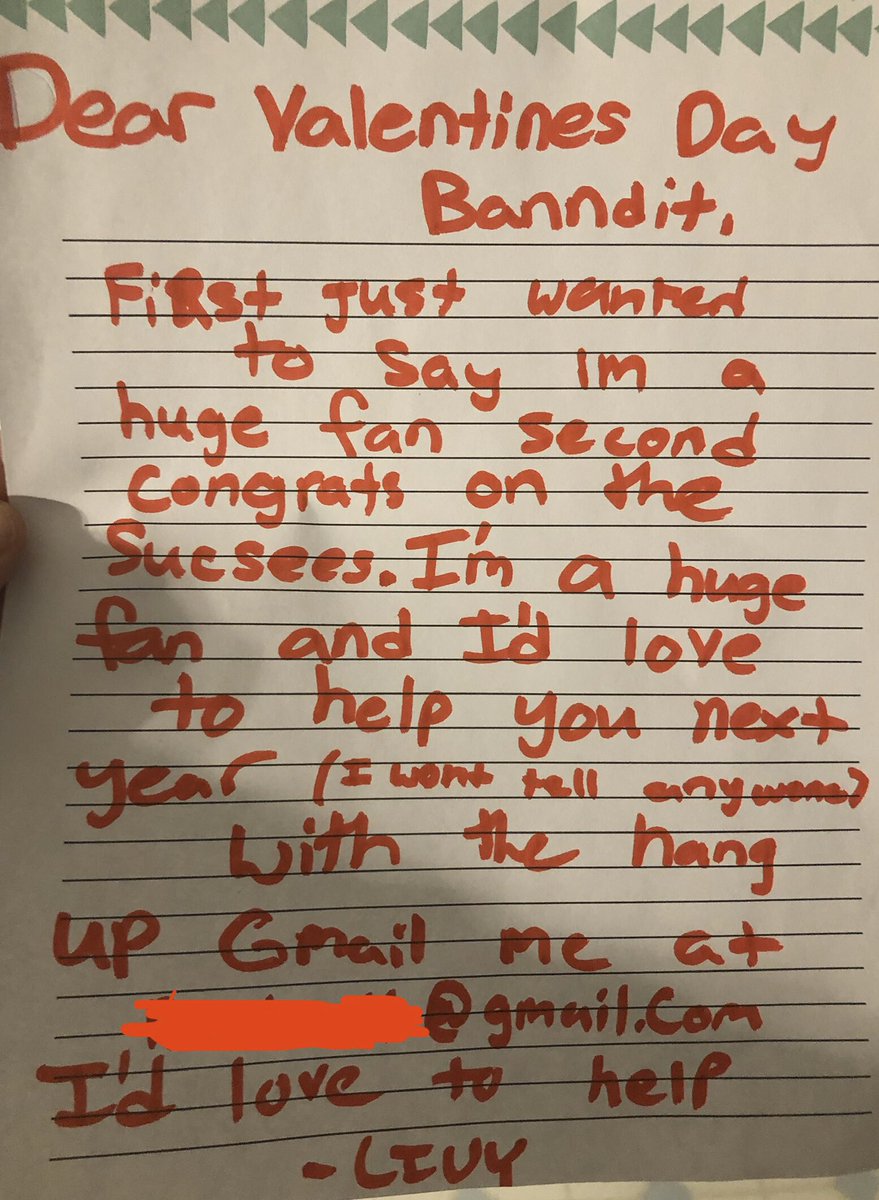 Dear Valentines Day
Banndit,
First just wanted
to say Im a
huge fan second
Congrats on the
Sucsees. I'm a huge
fan and I'd love
to help you next
year (I wont tell anywone)
with the hang
up Gmail me at
@gmail.Com
I'd love to help
-LIVY